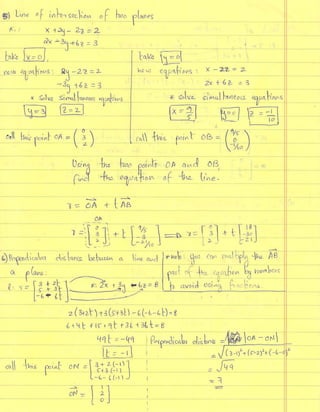 5) Line of intersection of two planes
x + 2y - 2z = 2
2x - 3y + 6z = 3
take x=0
new equations: 2y - 2z = 2
-3y + 6z = 3
* Solve Simultaneous equations
y=3 z=2
call this point OA = (0 3 2)
take y=0
new equations: x - 2z = 2
2x + 6z = 3
* solve simultaneous equations
x = 9/5 y=0 z = -1/10
call this point OB = (9/5 0 -1/10)
Using the two points OA and OB,
find the equation of the line.
r = OA + t AB
OA
r = [0 3 2] + t [9/5 -3 -21/10] ⇒ r = [0 3 2] + t [18 -30 -21]
6) Perpendicular distance between a line and
a plane.
* note: you can multiply the AB
part of the equation by numbers
to avoid using fractions.
l: r = [3 + 2t 5 + 3t -6 - 6t] π: 2x + 3y - 6z = 8
2(3+2t) + 3(5+3t) - 6(-6-6t) = 8
6 + 4t + 15 + 9t + 36 + 36t = 8
49t = -49
t = -1
call this point ON = [3 + 2(-1) 5 + 3(-1) -6 - 6(-1)]
ON = [1 2 0]
Perpendicular distance = |OA - ON|
= √(3-1)² + (5-2)² + (-6-0)²
= √49
= 7